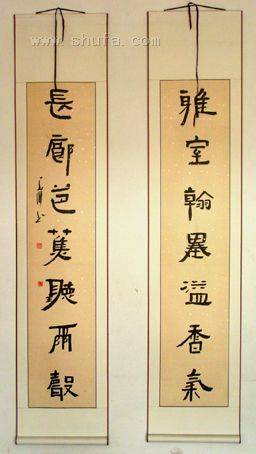 雅室翰墨溢香氣
長廊芭蕉聽雨聲
www.shufa.com